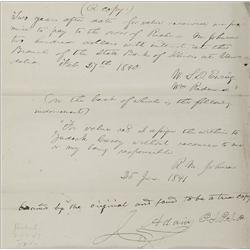 (A copy)
Two years after date for value received we pro
mise to pay to the order of Richard M Johnson
two thousand dollars with interest at the
Branch of the State Bank of Illinois at Van
dalia Feb. 27th 1840
W. L. D. Ewing
Wm
(on the back of which is the following
indorsement)
For value recd I assign the within to
without recourse to me
or my being responsible
R M Johnson
25 Jan 1841
by the original and found to be a true copy
Adams